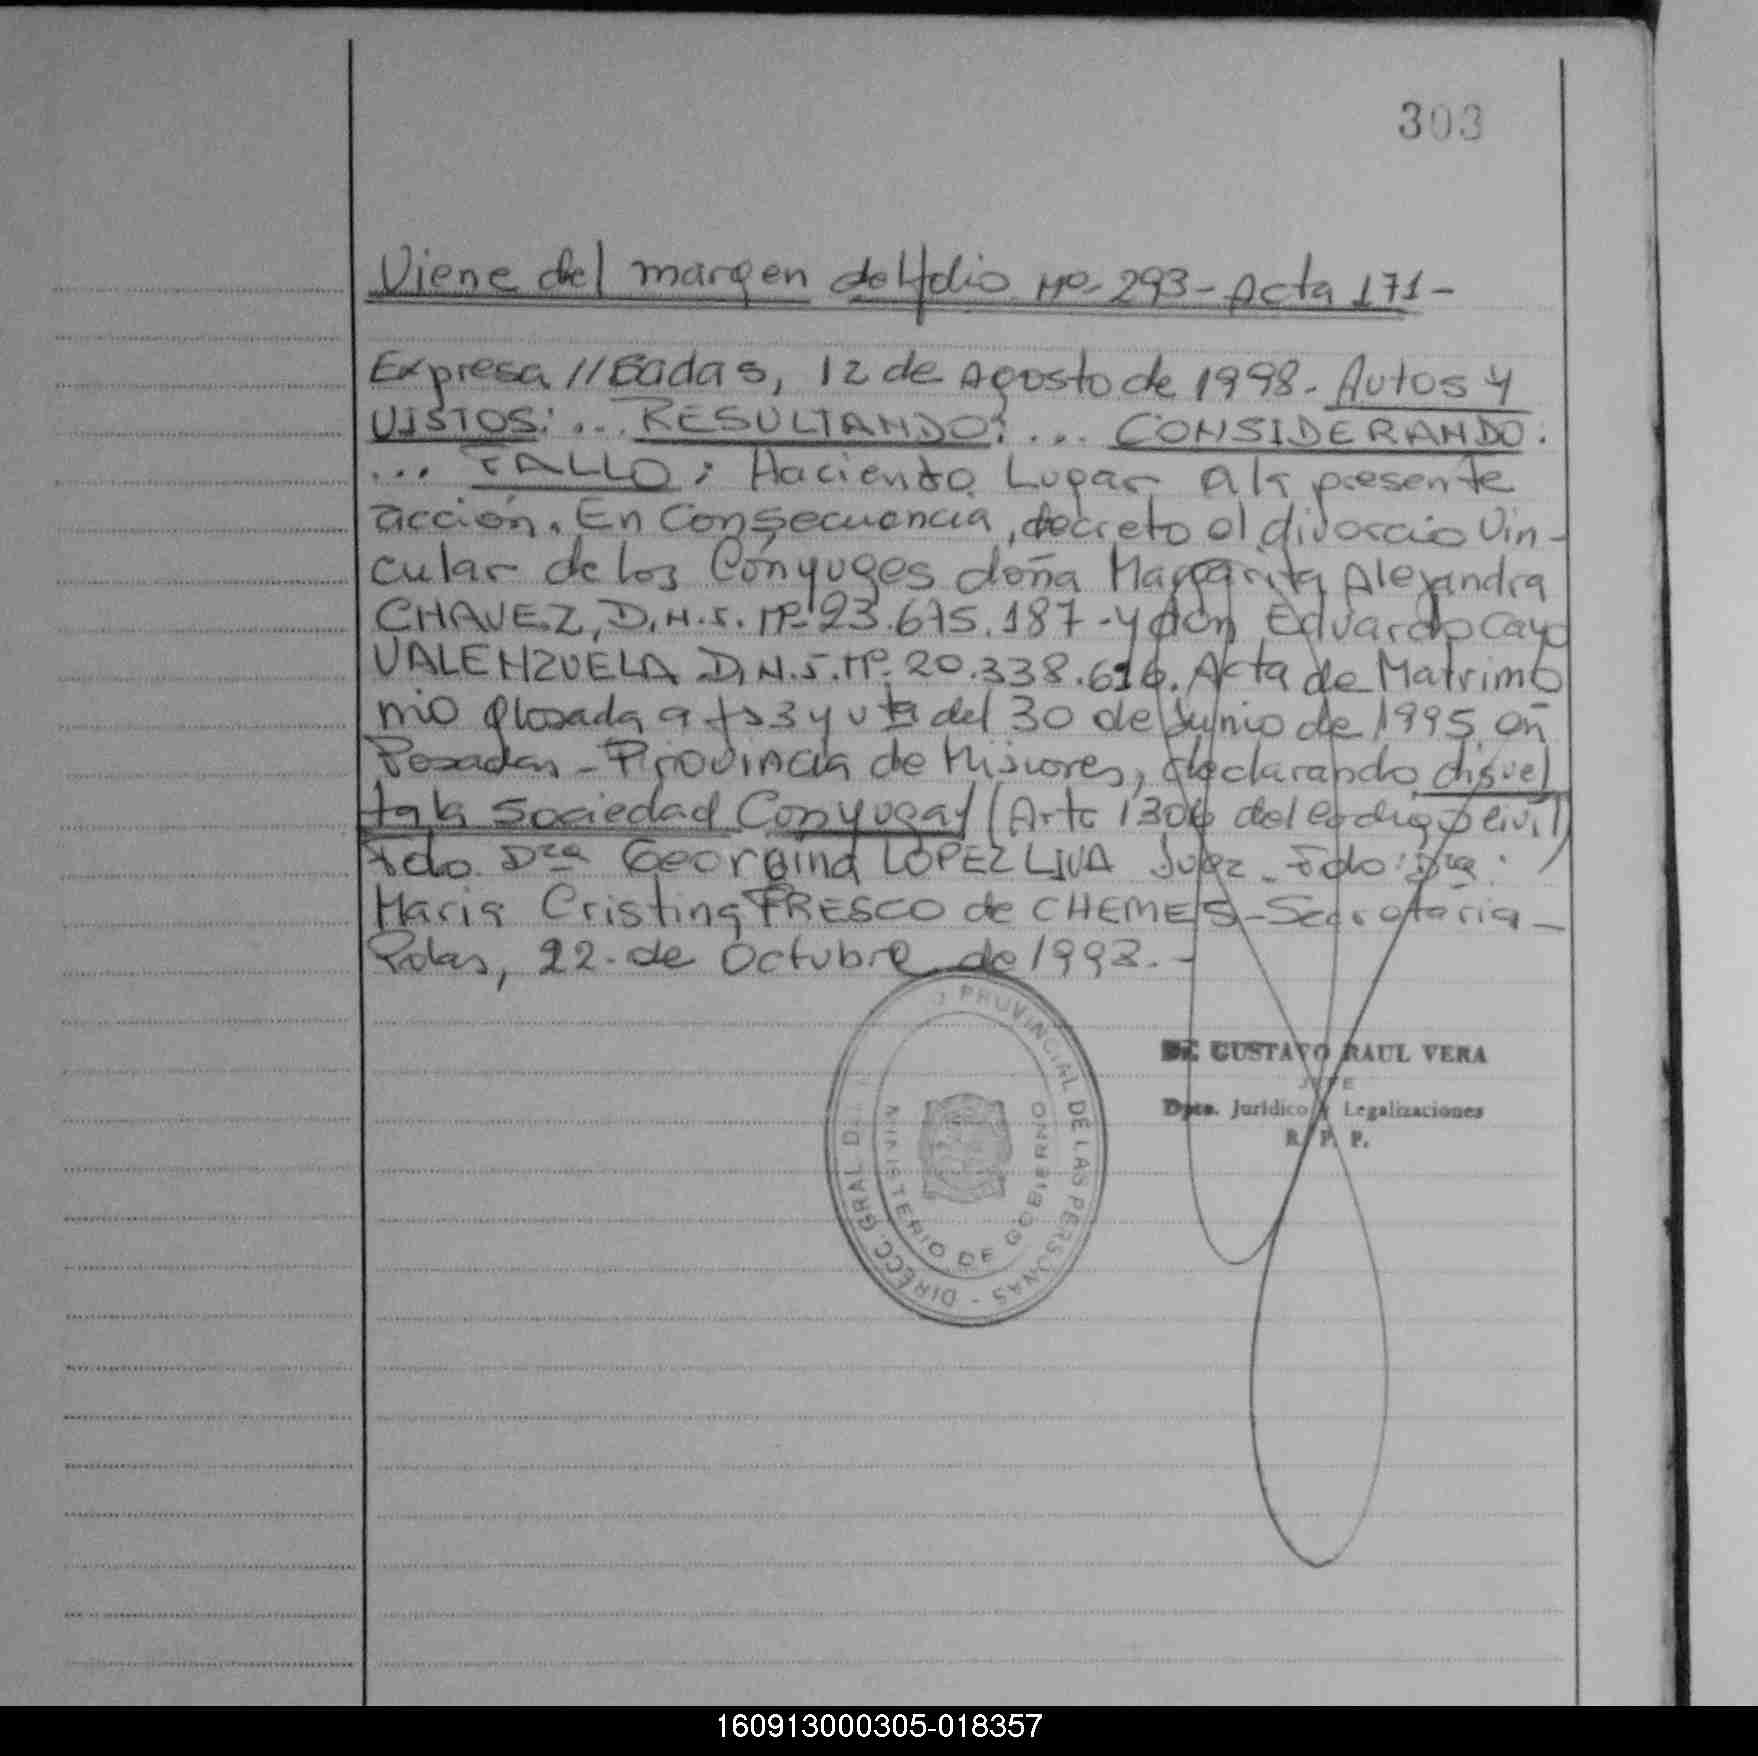 303
Viene del margen del folio Nº 293 - Acta 171 -
Expresa // sadas, 12 de Agosto de 1998. Autos y
VISTOS: ... RESULTANDO: ... CONSIDERANDO:
... FALLO: Haciendo Lugar a la presente
acción. En Consecuencia, decreto el divorcio Vin-
cular de los Cónyuges doña Margarita Alejandra
CHAVEZ, D.N.I. Nº 23.675.187 - y don Eduardo Cayo
VALENZUELA D.N.I. Nº 20.338.616. Acta de Matrimo
nio glosada a fs 3 y vta del 30 de Junio de 1995 en
Posadas - Provincia de Misiones, declarando disuel
ta la Sociedad Conyugal (Arto 1306 del Codigo Civil)
Fdo. Dra Georgina LOPEZ LIVA Juez - Fdo: Dra.
Maria Cristina FRESCO de CHEMES - Secretaria -
Pdas, 22 de Octubre de 1998. -
DIRECC. GRAL DEL PROVINCIAL DE LAS PERSONAS -
MINISTERIO DE GOBIERNO
Dr. GUSTAVO RAUL VERA
JEFE
Dpto. Jurídico y Legalizaciones
R. P. P.
160913000305-018357